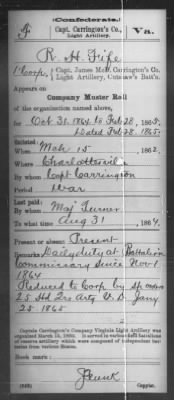 (Confederate.)
F Capt. Carrington's Co. Va.
Light Artillery.
R. H. Fife
1" Corp, Capt. James McD. Carrington's Co.
Light Artillery, Cutshaw's Batt'n.
Appears on
Company Muster Roll
of the organization named above,
for Oct 31. 1864 to Feb 28, 1865.
Dated Feb 28. 1865
Enlisted:
When Mch 15, 1862.
Where Charlottesville
By whom Capt Carrington
Period War
Last paid:
By whom Maj Turner
To what time Aug 31, 1864.
Present or absent Present
Remarks: Daily duty at Battalion
Commissary since Nov 1
1864
Reduced to Corp by
25 1865
Captain Carrington's Company Virginia Light Artillery was
organized March 15, 1862.
of reserve artillery which were composed of independent batteries from various States.
Book mark:
(642)
Copyist.